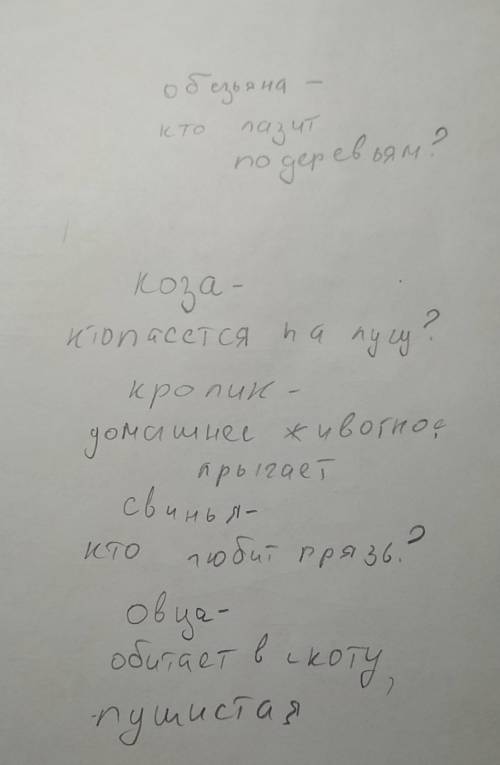 обезьяна –
кто лазит
по деревьям?
коза –
кто пасется на лугу?
кролик –
домашнее животное
прыгает
свинья –
кто любит грязь?
овца –
обитает в скоту,
пушистая